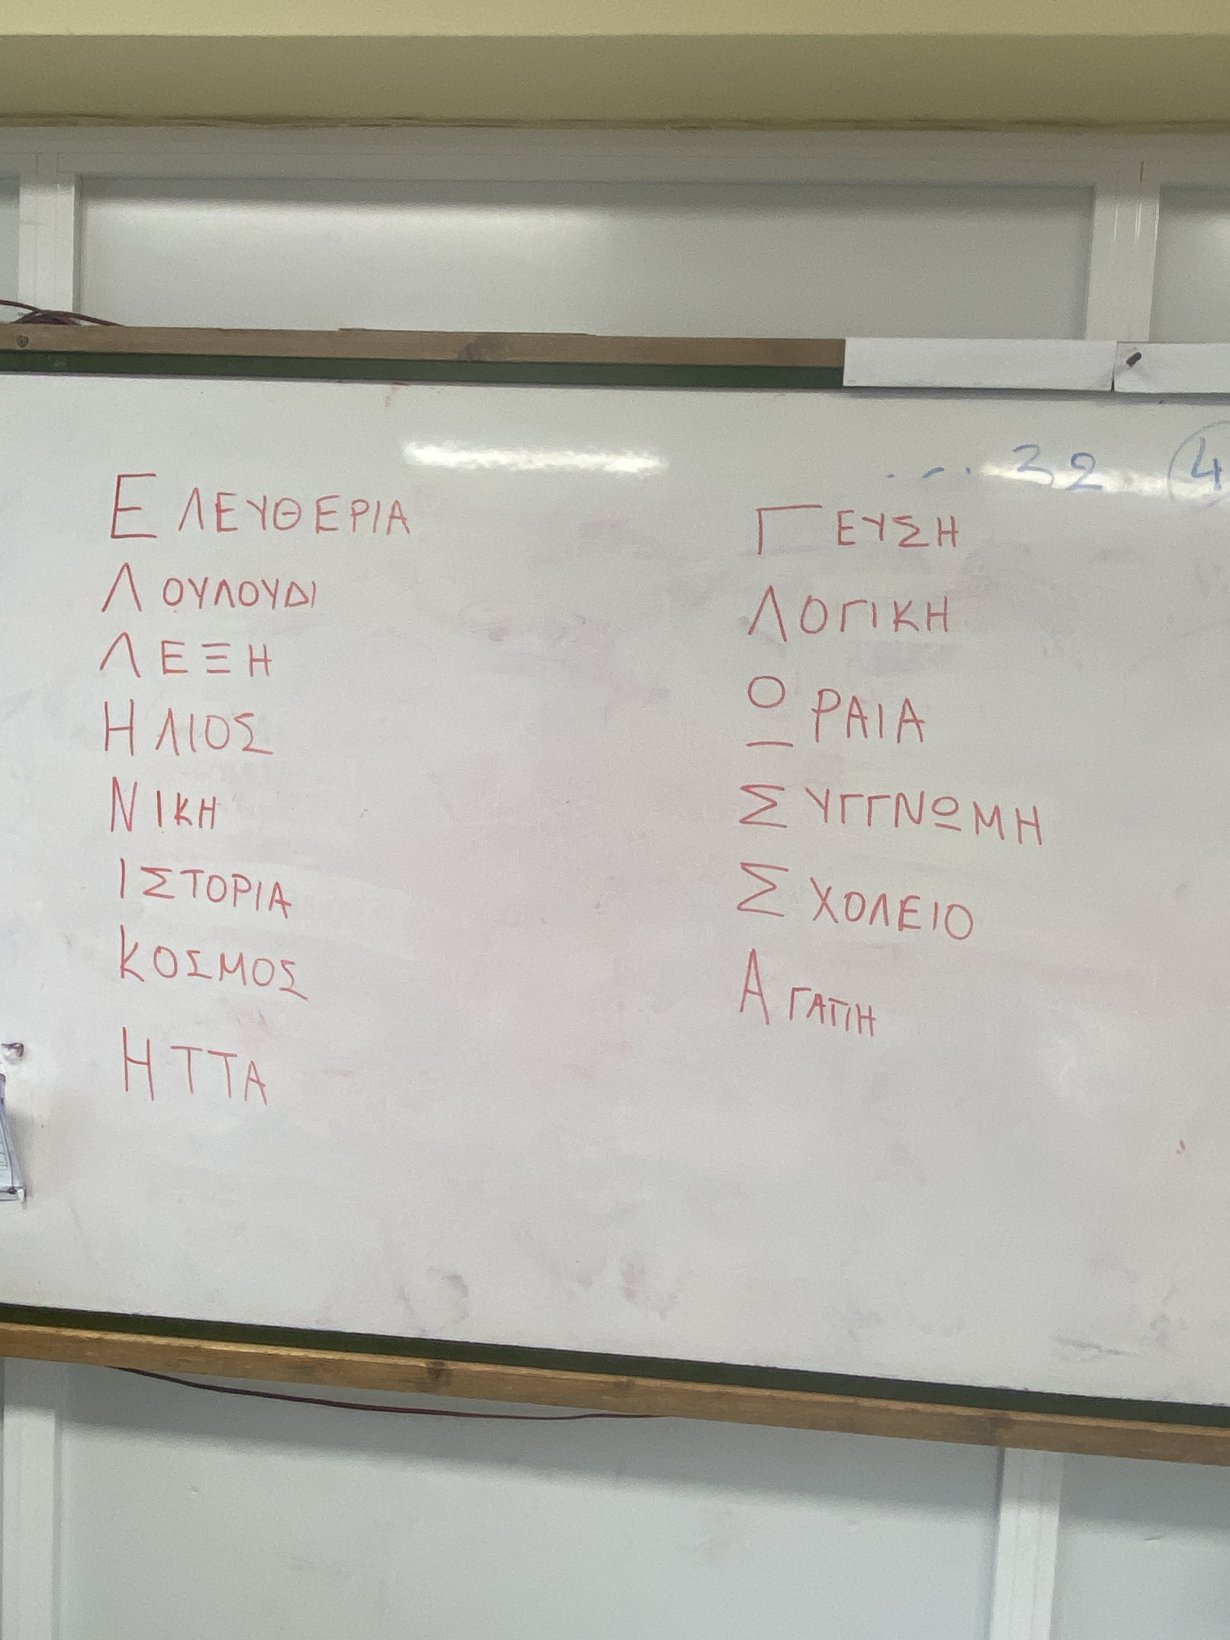 ... 32 4
ΕΛΕΥΘΕΡΙΑ
ΛΟΥΛΟΥΔΙ
ΛΕΞΗ
ΗΛΙΟΣ
ΝΙΚΗ
ΙΣΤΟΡΙΑ
ΚΟΣΜΟΣ
ΗΤΤΑ
ΓΕΥΣΗ
ΛΟΓΙΚΗ
ΩΡΑΙΑ
ΣΥΓΓΝΩΜΗ
ΣΧΟΛΕΙΟ
ΑΓΑΠΗ